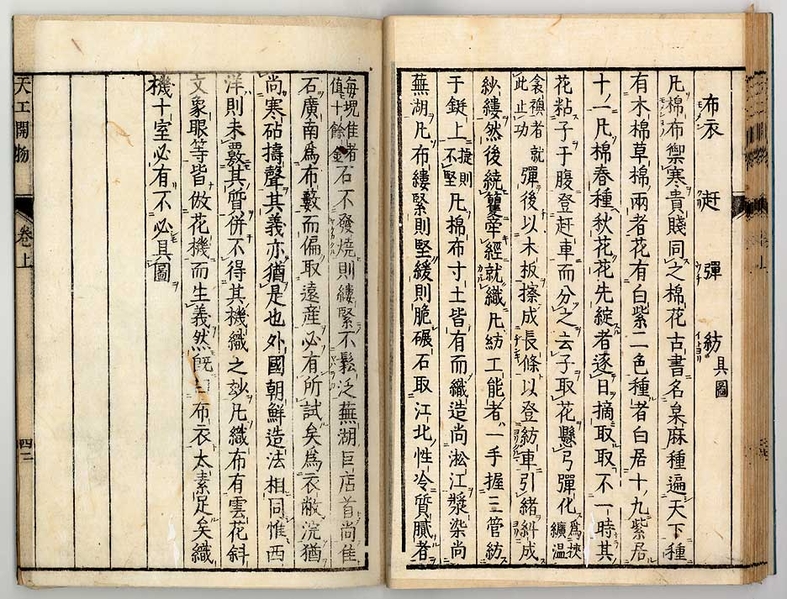 布衣 赶 彈 紡 具圖
凡棉布禦寒貴賤同之棉花古書名枲麻種遍天下種
有木棉草棉兩者花有白紫二色種者白居十九紫居
十一凡棉春種秋花花先綻者逐日摘取取不一時其
花粘子于腹登赶車而分之去子取花懸弓彈化為挾纊温
衾襖者就此止功彈後以木板擦成長條以登紡車引緒糾成
紗縷然後繞籰牽經就織凡紡工能者一手握三管紡
于鋌上捷則不堅凡棉布寸土皆有而織造尚淞江漿染尚
蕪湖凡布縷緊則堅緩則脆碾石取江北性冷質膩者
每塊佳者值十餘金石不發燒則縷緊不鬆泛蕪湖巨店首尚佳
石廣南為布藪而偏取遠產必有所試矣為衣敝浣猶
尚寒砧擣聲其義亦猶是也外國朝鮮造法相同惟西
洋則未覈其質併不得其機織之玅凡織布有雲花斜
文象眼等皆倣花機而生義然既曰布衣太素足矣織
機十室必有不必具圖
天工開物 卷上 四二